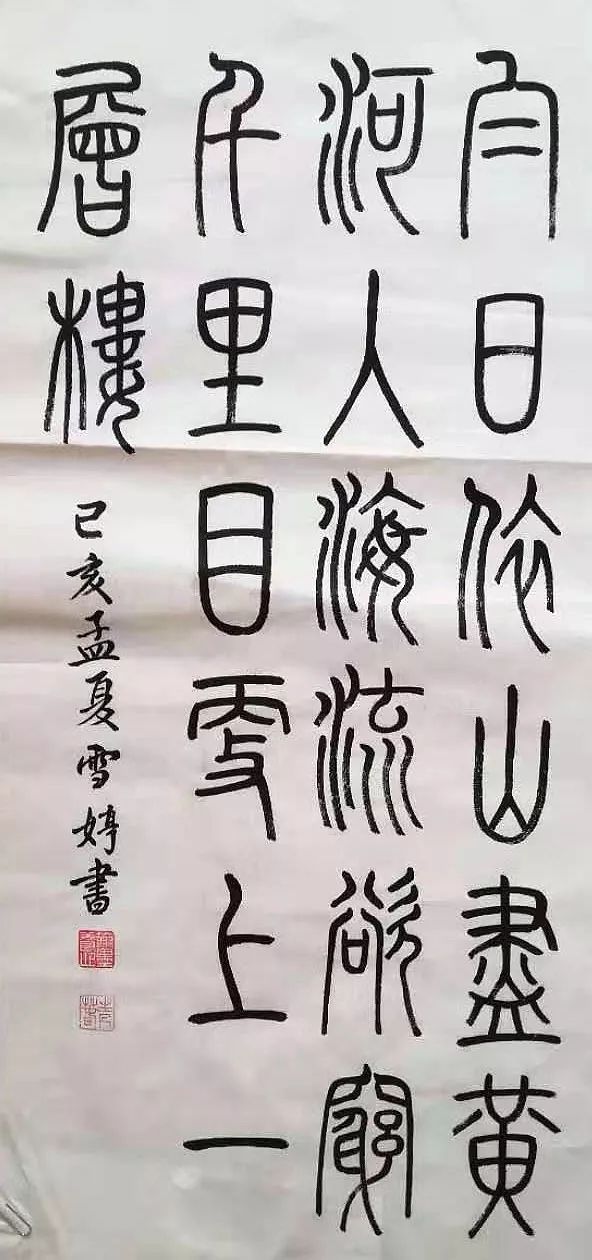 白日依山盡黃
河入海流欲窮
千里目更上一
層樓
己亥孟夏雪婷書